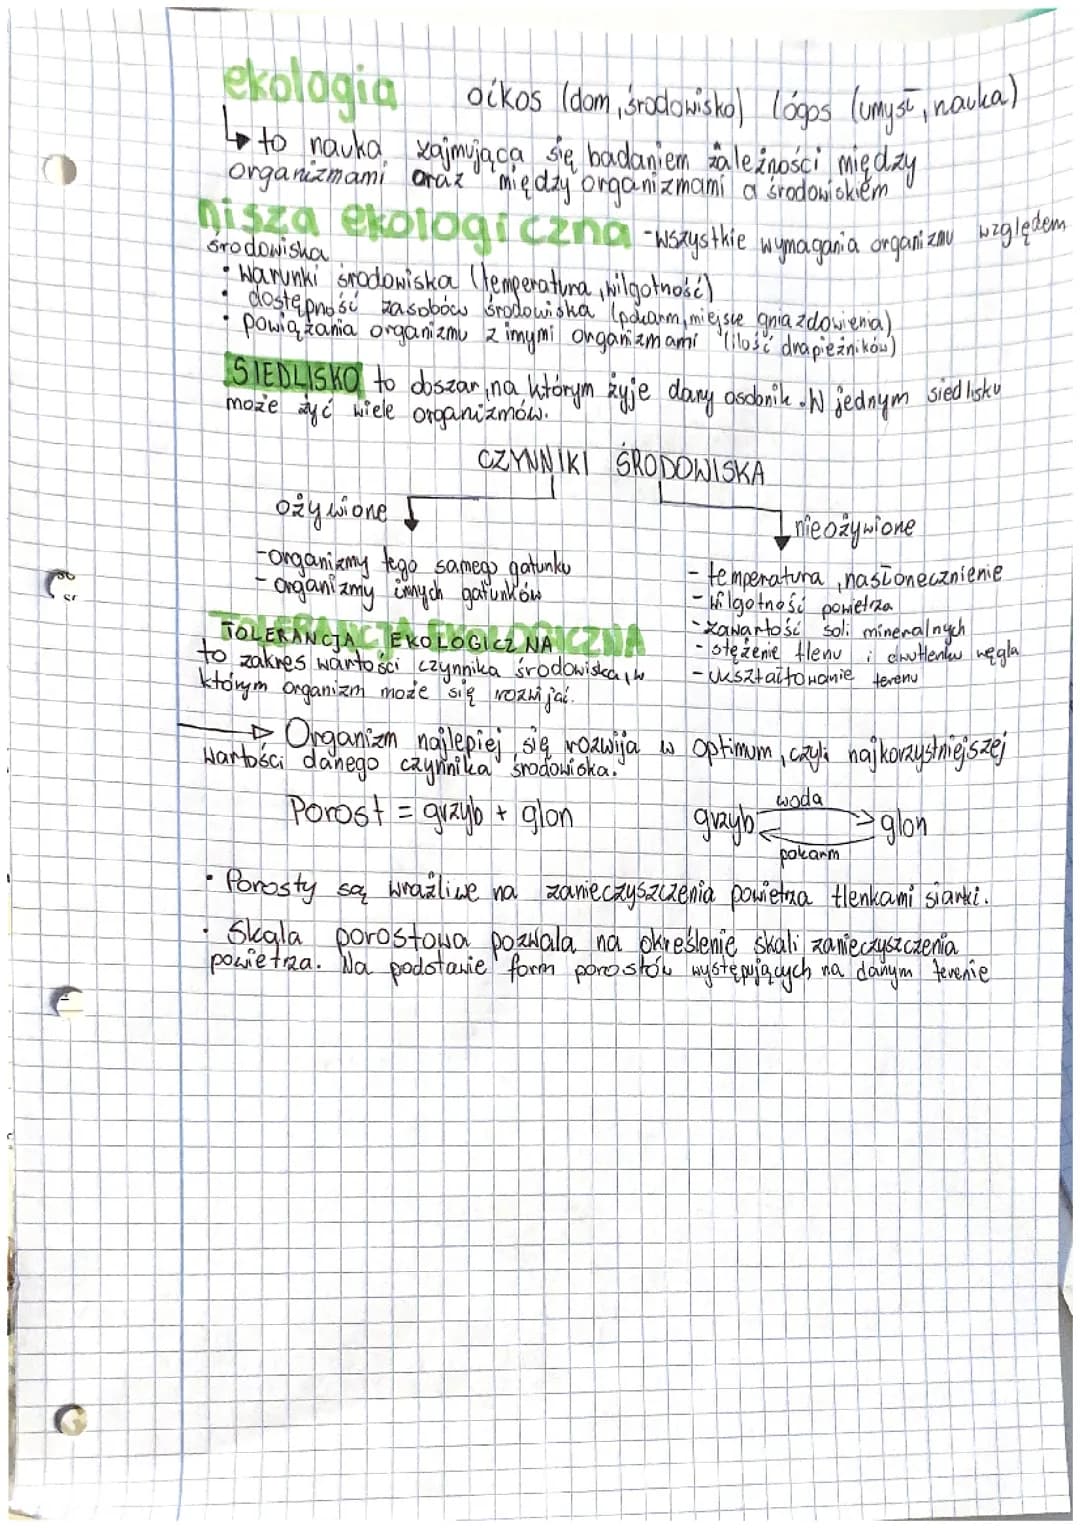 ekologia oikos (dom, środowisko) lógos (umysł, nauka)
to nauka zajmująca się badaniem zależności między
organizmami oraz między organizmami a środowiskiem
nisza ekologiczna - wszystkie wymagania organizmu względem
środowiska
• warunki środowiska (temperatura, wilgotność)
• dostępność zasobów środowiska (pokarm, miejsce gniazdowienia)
• powiązania organizmu z innymi organizmami (ilość drapieżników)
SIEDLISKO to obszar, na którym żyje dany osobnik. W jednym siedlisku
może żyć wiele organizmów.
CZYNNIKI ŚRODOWISKA
ożywione
nieożywione
- organizmy tego samego gatunku
- organizmy innych gatunków
- temperatura, nasłonecznienie
- wilgotność powietrza
- zawartość soli mineralnych
- stężenie tlenu i dwutlenku węgla
- ukształtowanie terenu
TOLERANCJA EKOLOGICZNA
to zakres wartości czynnika środowiska, w
którym organizm może się rozwijać.
Organizm najlepiej się rozwija w optimum, czyli najkorzystniejszej
wartości danego czynnika środowiska.
Porost = grzyb + glon
woda
grzyb glon
pokarm
• Porosty są wrażliwe na zanieczyszczenia powietrza tlenkami siarki.
• Skala porostowa pozwala na określenie skali zanieczyszczenia
powietrza. Na podstawie form porostów występujących na danym terenie